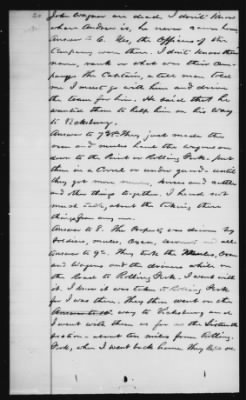 John Wagner are dead I don't know
where Andrew is, he never came home
Answer to 6. Yes, the Officers of the
Company were there. I don't know their
name, rank or what was their Com-
pany. The Captain, a tall man told
me I must go with him and drive
the team for him. He said that he
wanted them to help him on his way
to Vicksburg.
Answer to 7. They just made the
oxen and mules haul the wagons on
down to the Point or Rolling Fork. put
them in a Corral under guard - until
they got more mules, horses and cattle
and other things together. I heard not
much talk, about the taking these
things from any one.
Answer to 8. The Property was driven by
Soldiers, mules, Oxen, and all
Answer to 9. They took the Mules, Oxen
and Wagons out the driveway which on
the Road to Rolling Fork. I went with
it. I know it was taken to Rolling Fork
for I was there. They then went on the
way to Vicksburg and
I went with them as far as the
about ten miles from Rolling
Fork, when I went back home they told me